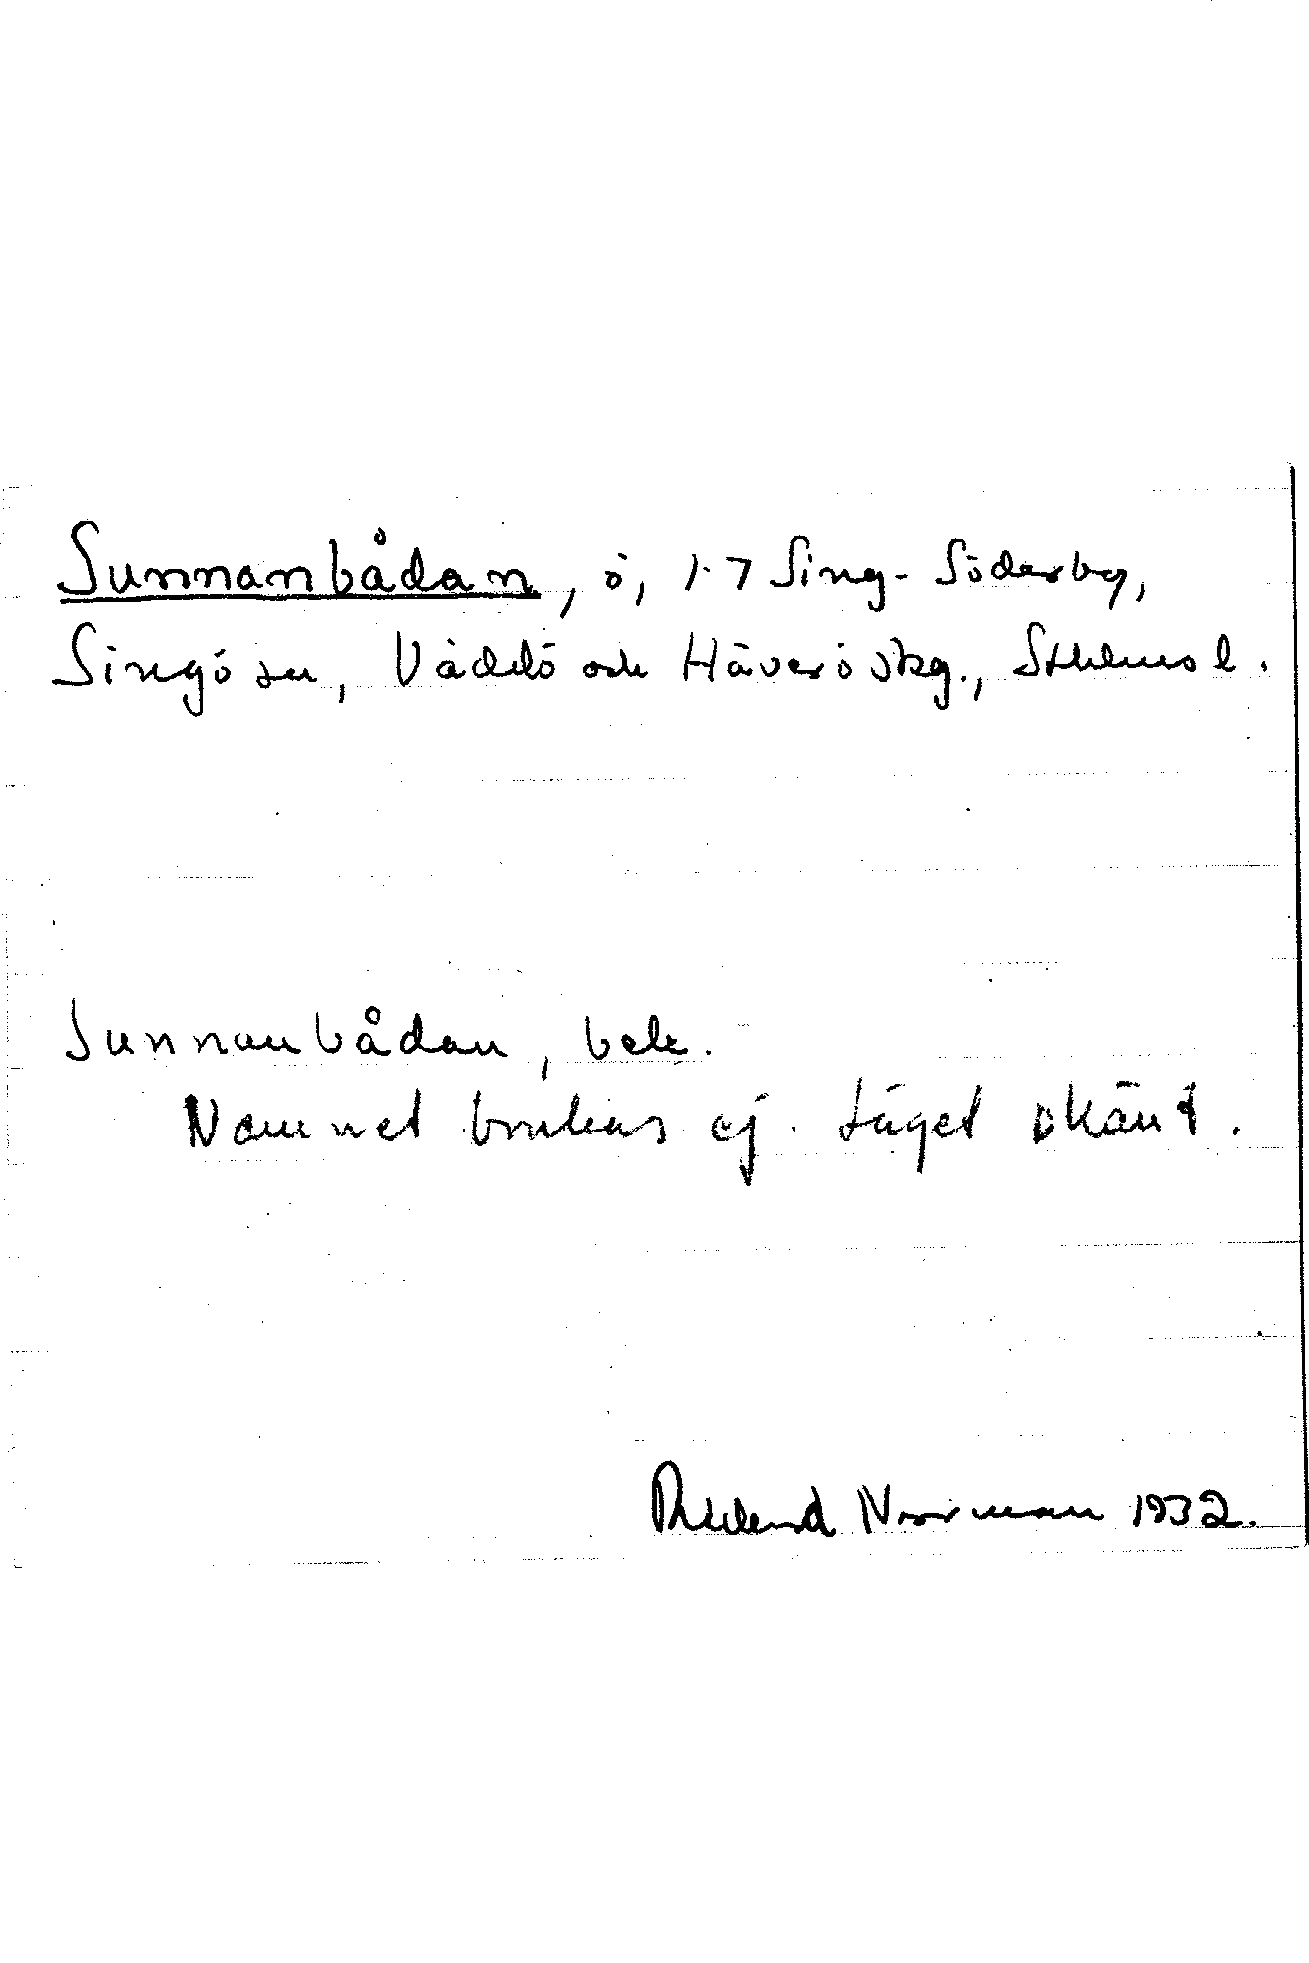 Sunnanbådan, ö, 1-7 Sing-Söderby,
Singö sn, Väddö och Häverö skg., Sthlms l.
Sunnanbådan, bek.
Namnet brukas ej. Läget okänt.
Rickard Norrman 1932.